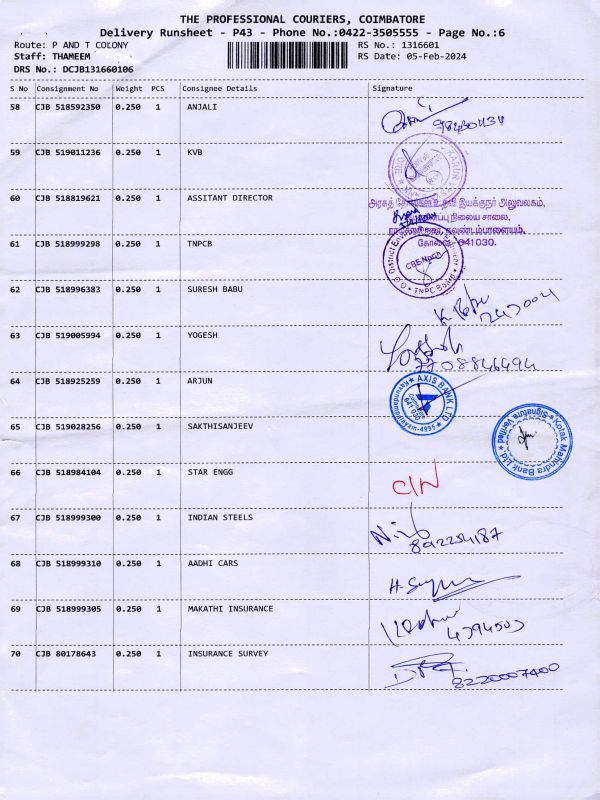 THE PROFESSIONAL COURIERS, COIMBATORE
Delivery Runsheet - P43 - Phone No.:0422-3505555 - Page No.:6
Route: P AND T COLONY
RS No.: 1316601
Staff: THAMEEM
RS Date: 05-Feb-2024
DRS No.: DCJB131660106
S No Consignment No Weight PCS Consignee Details Signature
58 CJB 518592350 0.250 1 ANJALI
59 CJB 519011236 0.250 1 KVB
60 CJB 518819621 0.250 1 ASSITANT DIRECTOR
உதவி இயக்குநர் அலுவலகம்,
நிலைய சாலை,
கவுண்டம்பாளையம்,
641030.
61 CJB 518999298 0.250 1 TNPCB
TNPC Board
62 CJB 518996383 0.250 1 SURESH BABU
63 CJB 519005994 0.250 1 YOGESH
7708846494
64 CJB 518925259 0.250 1 ARJUN
AXIS BANK LTD
65 CJB 519028256 0.250 1 SAKTHISANJEEV
Kotak Mahindra Bank Ltd.
Signature Verified
66 CJB 518984104 0.250 1 STAR ENGG
67 CJB 518999300 0.250 1 INDIAN STEELS
68 CJB 518999310 0.250 1 AADHI CARS
69 CJB 518999305 0.250 1 MAKATHI INSURANCE
70 CJB 80178643 0.250 1 INSURANCE SURVEY
8220007400